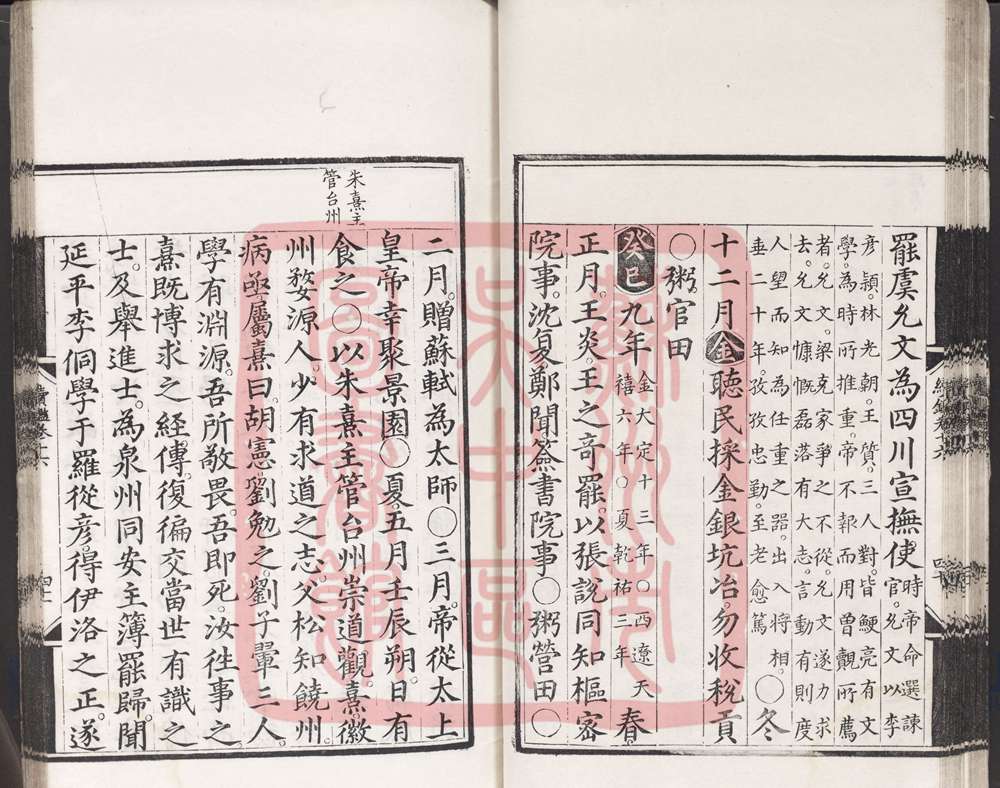 罷虞允文為四川宣撫使時帝命選諫
官。允文以李
彥穎。林光朝。王質。三人對。皆鯁亮有文
學。為時所推重。帝不報。而用曾覿所薦
者。允文。梁克家爭之不從。允文遂力求
去。允文慷慨磊落有大志。言動有則度
人望而知為任重之器。出入將相。〇冬
垂二十年。孜孜忠勤。至老愈篤
十二月金聽民採金銀坑冶。勿收稅貢
〇粥官田
癸巳九年金大定十三年〇西遼天
禧六年〇夏乾祐三年春
正月。王炎。王之奇罷。以張說同知樞密
院事。沈夏鄭聞簽書院事〇粥營田〇
朱熹主
管台州
二月。贈蘇軾為太師〇三月。帝從太上
皇帝幸聚景園〇夏。五月壬辰朔。日有
食之〇以朱熹主管台州崇道觀。熹徽
州婺源人。少有求道之志。父松知饒州。
病亟屬熹曰。胡憲劉勉之劉子翬三人。
學有淵源。吾所敬畏。吾即死。汝往事之。
熹既博求之經傳。復徧交當世有識之
士。及舉進士。為泉州同安主簿。罷歸。聞
延平李侗學于羅從彥。得伊洛之正。遂
蘇州市
吳中區
圖書館